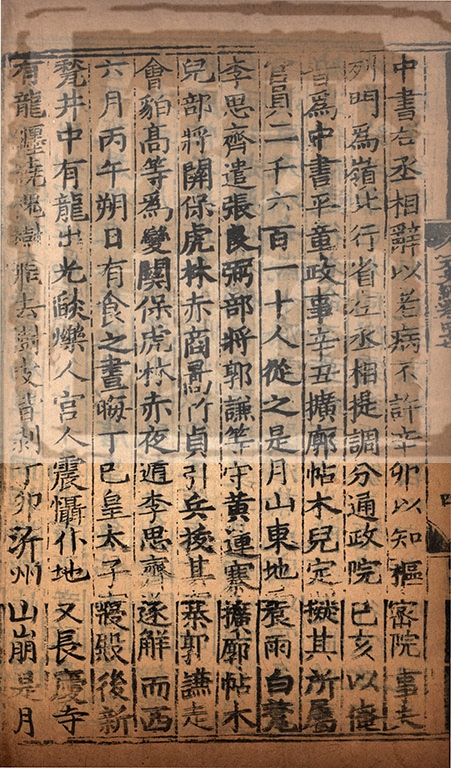 中書右丞相辭以老病不許辛卯以知樞密院事失
列門為嶺北行省左丞相提調分通政院己亥以俺
普為中書平章政事辛丑擴廓帖木兒定擬其所屬
官員二千六百一十人從之是月山東地震雨白氂
李思齊遣張良弼部將郭謙等守黃連寨擴廓帖木
兒部將關保虎林赤商暠竹貞引兵拔其寨郭謙走
會貊高等為變關保虎林赤夜遁李思齊遂解而西
六月丙午朔日有食之晝晦丁巳皇太子寢殿後新
甃井中有龍出光燄爍人宮人震懾仆地又長慶寺
有龍纏繞槐樹飛去樹皮皆剥丁卯沂州山崩是月